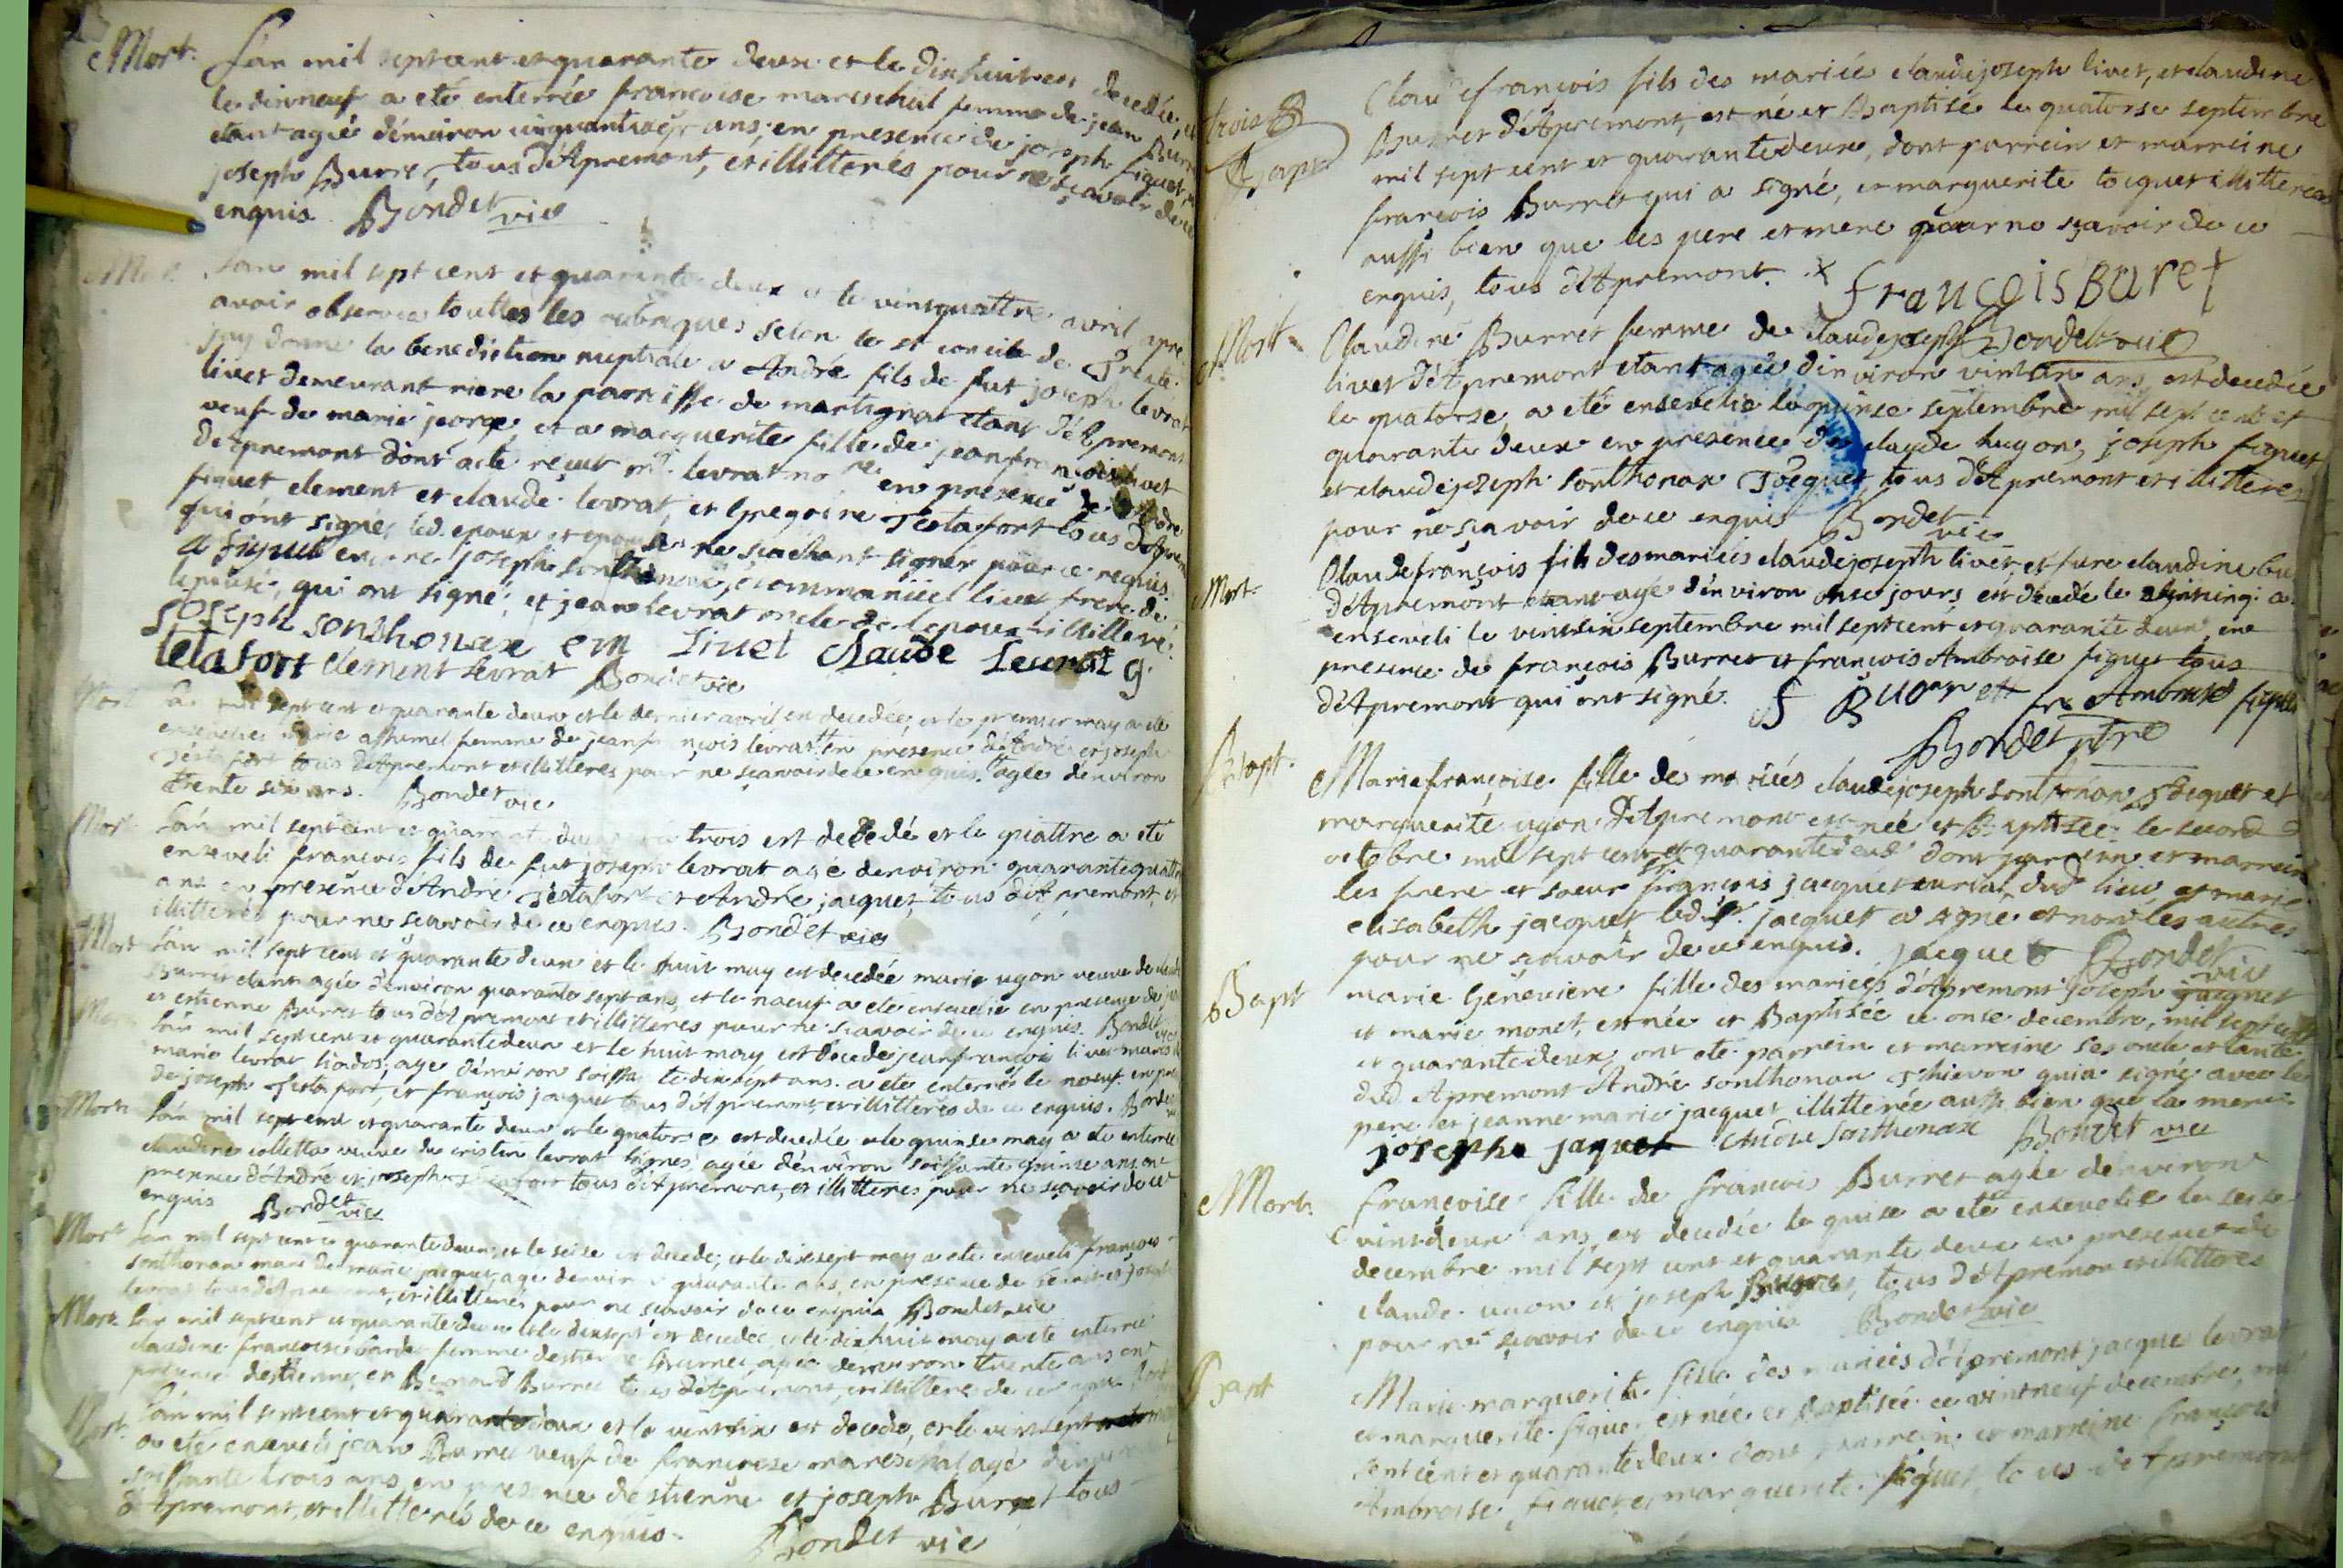 Mort. L'an mil sept cent et quarante deux et le dixhuit est decedée, et
le dixneuf a eté enterrée francoise mareschal femme de jean Burret
etant agée d'environ cinquantiesix ans, en presence de joseph figuet,
joseph Burret, tous d'Apremont, et illitterés pour ne sçavoir de ce
enquis Bondet vic
L'an mil sept cent et quarante deux et le vintquattre avril, apre
avoir observees touttes les rubriques selon le st concile de Trente.
jay donne la benediction nuptiale a André fils de fut joseph levrat
livet demeurant riere la parroisse de martignat etant d'Apremont
veuf de marie jeorge et a marguerite fille de jeanfrancois livet
d'Apremont dont acte reçut mr. levrat nore. en presence de
figuet clement et claude levrat, et Gregoire Testafort tous d'Aprem
qui ont signé, led. epoux et epouse ne sçachant signér pour ce requis.
joseph sonthonax, livet frere de
lepouse, qui ont signé, et jean levrat oncle de lepoux illitteré.
joseph sonthonax em Livet Claude Levrat g.
tetafort clement levrat Bondet vic
Mort L'an mil sept cent et quarante deux et le dernier avril est decedée, et le premier may a eté
ensevelie marie femme de jeanfrançois levrat en presence d'André et joseph
Testafort tous d'Apremont et illitteres pour ne sçavoir de ce enquis. agée d'environ
trente six ans. Bondet vic
Mort L'an mil sept cent et quarante deux trois est decedé et le quattre a eté
enseveli francois fils de fut joseph levrat agé denviron quarantequattre
ans en presence d'André Testafort et André jacquet, tous d'Apremont, et
illitterés pour ne sçavoir de ce enquis. Bondet vic
Mort L'an mil sept cent et quarante deux et le huit may est decedée marie ugon veuve de
Burret etant agée d'environ quarante sept ans, et le noeuf a eté ensevelie en presence de
et estienne Burret tous d'Apremont et illitteres pour ne sçavoir de ce enquis. Bondet vic
L'an mil sept cent et quarantedeux et le huit may est decedé jeanfrançois livet mari de
marie levrat agé d'environ soissantedixsept ans. a eté enterré le noeuf en pre
de joseph Testafort, et françois jacquet tous d'Apremont, et illitteres de ce enquis. Bondet
Mort L'an mil sept cent et quarante deux et le quatorse est decedée et le quinse may a eté enterrée
claudine colletta veuve de cristin levrat agée d'environ soissante quinse ans, en
presence d'André et joseph tous d'Apremont, et illitteres pour ne sçavoir de ce
enquis Bondet vic
Mort L'an mil sept cent et quarante deux, et le seise est decedé, et le dixsept may a eté enseveli françois
sonthonax mari de marie jacquet agé denviron quarante ans, en presence de et joseph
levrat tous d'Apremont, et illitterés pour ne sçavoir de ce enquis Bondet vic
Mort L'an mil sept cent et quarante deux et le dixsept est decedée, et le dixhuit may a eté enterrée
claudine francoise femme destienne Burret, agée denviron trente ans en
presence destienne, et Bernard Burret tous d'Apremont, et illitteres de ce enquis
Mort. L'an mil sept cent et quarante deux et le vintsix est decedé, et le vintsept
a eté enseveli jean Burret veuf de francoise mareschal agé d'environ
soissante trois ans en presence destienne et joseph Burret tous
d'Apremont, et illitterés de ce enquis. Bondet vic
trois
Bapt
Claudefrancois fils des mariés claudejoseph livet, et claudine
Burret d'Apremont, est né et Baptisé le quatorse septembre
mil sept cent et quarantedeux, dont parrein et marreine
francois Burret qui a signé, et marguerite tocquet illitterées
aussi bien que les pere et mere pour ne sçavoir de ce
enquis, tous d'Apremont. françois Buret
Bondet vic
Mort Claudine Burret femme de claudejoseph
livet d'Apremont etant agée d'environ vintsix ans, est decedée
le quatorse, a eté ensevelie le quinse septembre mil sept cent et
quarante deux en presence de claude hugon, joseph figuet
et claudejoseph sonthonax Tocquet, tous d'Apremont et illitteres
pour ne sçavoir de ce enquis Bondet vic
Mort. Claudefrançois fils des mariéés claudejoseph livet, et fure claudine bu
d'Apremont etant agé d'environ onse jours, est decedé le a
enseveli le vintsix septembre mil sept cent et quarante deux, en
presence de françois Burret et francois Ambroise figuet tous
d'Apremont qui ont signé. f Buorett fr Ambroise figuet
Bondet ptre
Bapt. Mariefrançoise fille des mariéés claudejoseph sonthonax Tocquet et
marguerite ugon d'Apremont est née et Baptisée le second
octobre mil sept cent et quarantedeux dont parrein et marreine
les frere et soeur sr. françois jacquet curial dud. lieu, et marie
elisabeth jacquet, led. sr. jacquet a signé et non les autres
pour ne sçavoir de ce enquis. jacquet Bondet vic
Bapt marie Genevieve fille des mariéés d'Apremont joseph jacquet
et marie monet, est née et Baptisée ce onse decembre, mil sept cent
et quarantedeux, ont eté parrein et marreine ses oncle et tante
dud. Apremont André sonthonax Thievon qui a signé avec le
pere et jeanne marie jacquet illitterée aussi bien que la mere.
josephe jaquet André Sonthonax Bondet vic
Mort. françoise fille de francois Burret agée d'environ
vintdeux ans, est decedée le quise a eté ensevelie le seise
decembre mil sept cent et quarante deux en presence de
claude ugon et joseph Burret, tous d'Apremon et illitteres
pour ne sçavoir de ce enquis Bondet vic
Bapt Marie marguerite fille des mariéés d'Apremont jacque levrat
et marguerite figuet est née et Baptisée ce vintneuf decembre, mil
sept cent et quarantedeux dont parrein et marreine françois
Ambroise figuet et marguerite figuet, tous de Apremont